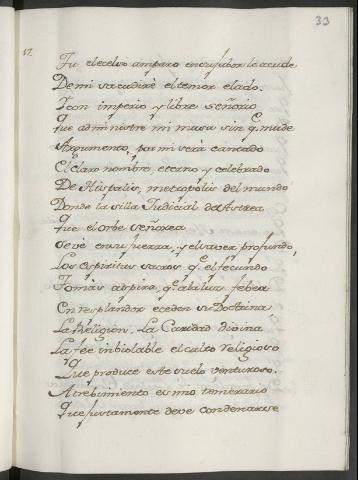 33
17.
Tu el celso amparo en su fabor le acude
De mi sacudiré el temor elado.
Y con imperio y libre señorio
que administre mi musa sin q.e mude
Argumento, por mi será cantado
El claro nombre, eterno y celebrado
De Hispalis, metropolis del mundo
Donde la silla Judicial de Astrea
que el orbe señorea
Se vé en su fuerza, y el saver profundo,
Los espiritus sacros, q.e el fecundo
Tomas adspira, q.e a la luz febea
En resplandor eceden su Doctrina
La Religion, La Caridad divina
La fee inbiolable el culto religioso
Que produce este suelo venturoso.
Atrebimiento es mio temerario
que justamente deve condenarse